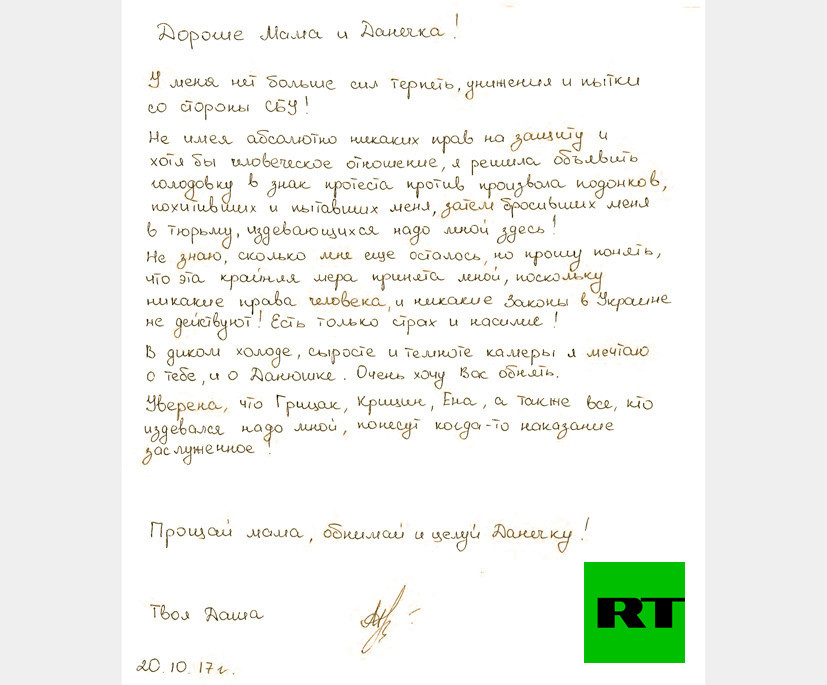 Дорогие Мама и Данечка!
У меня нет больше сил терпеть, унижения и пытки
со стороны СБУ!
Не имея абсолютно никаких прав на защиту и
хотя бы человеческое отношение, я решила объявить
голодовку в знак протеста против произвола подонков,
похитивших и пытавших меня, затем бросивших меня
в тюрьму, издевающихся надо мной здесь!
Не знаю, сколько мне еще осталось, но прошу понять,
что эта крайняя мера принята мной, поскольку
никакие права человека, и никакие Законы в Украине
не действуют! Есть только страх и насилие!
В диком холоде, сыросте и темноте камеры я мечтаю
о тебе, и о Данюшке. Очень хочу Вас обнять.
Уверена, что Грицак, Крищин, Ена, а также все, кто
издевался надо мной, понесут когда-то наказание
заслуженное!
Прощай мама, обнимай и целуй Данечку!
Твоя Даша
20.10.17г.
RT